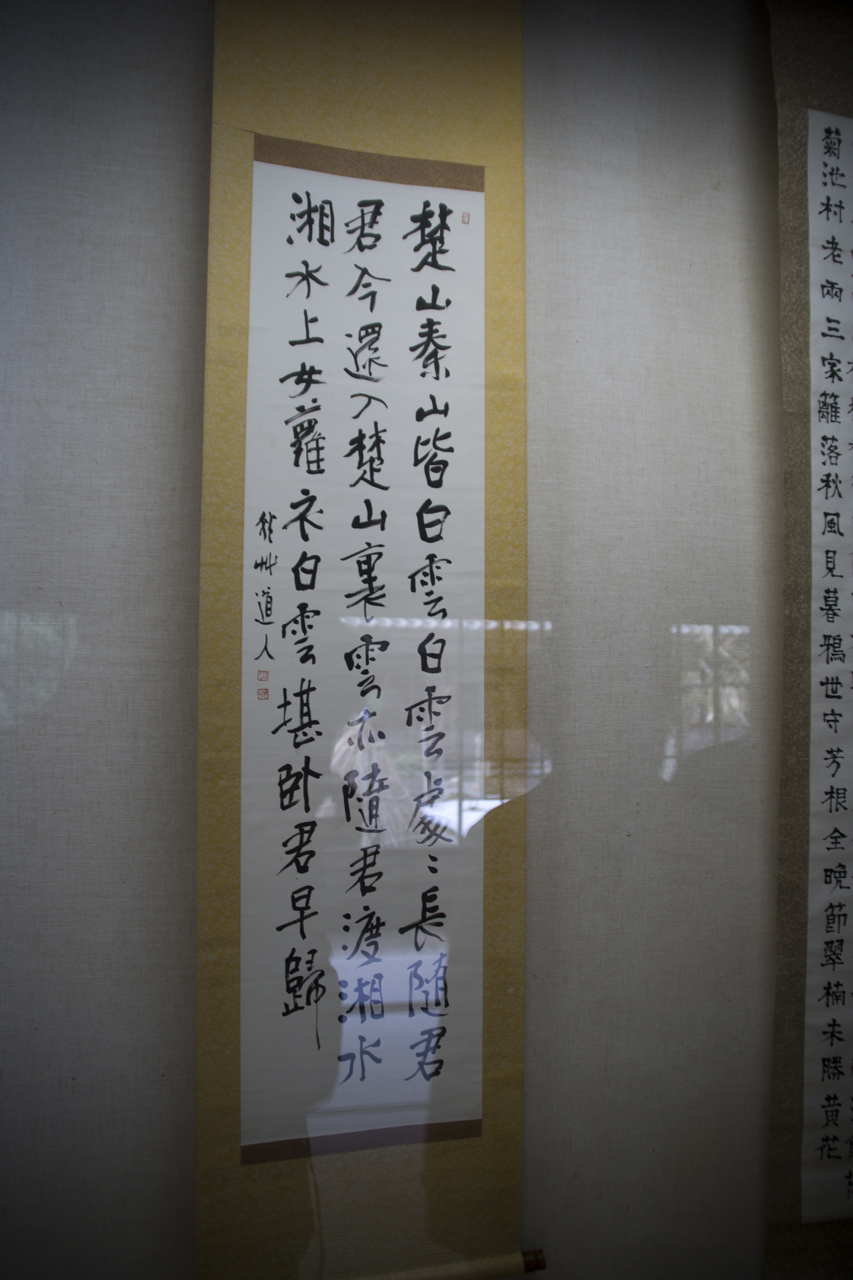 楚山秦山皆白雲白雲處〻長隨君
君今還入楚山裏雲亦隨君渡湘水
湘水上女蘿衣白雲堪臥君早歸
艸道人
菊池村老兩三家籬落秋風見暮鴉世守芳根全晚節翠楠未勝黄花